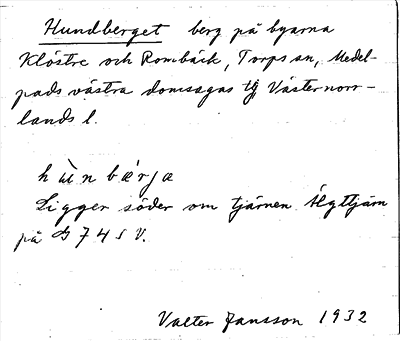 Hundberget berg på byarna
Klöstre och Rombäck, Torps sn, Medel-
pads västra domsagas tlg Västernorr-
lands l.
hùnbærjæ
Ligger söder om tjärnen Älgtjärn
på G 74 S V.
Valter Jansson 1932